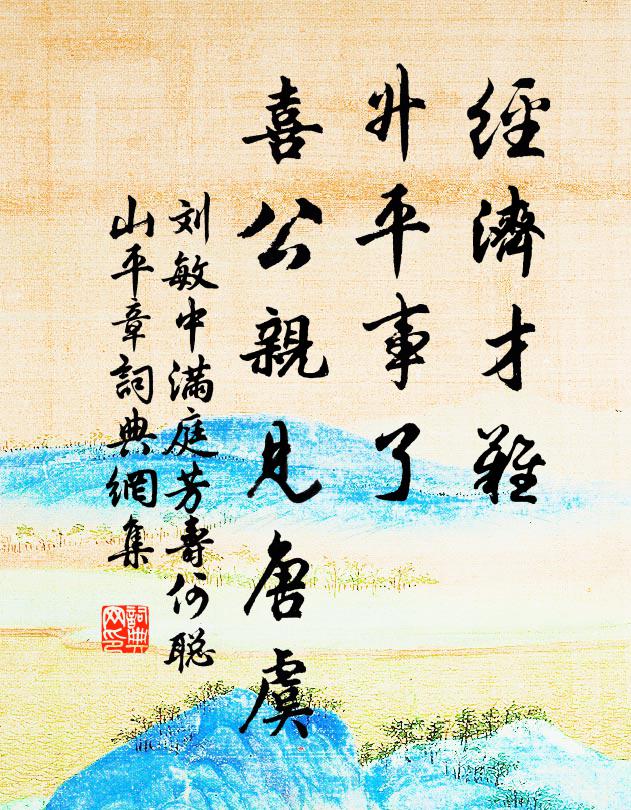 經濟才難
升平事了
喜公親見唐虞
刘敏中满庭芳壽何聪
山平章詞典網集
詞典网印